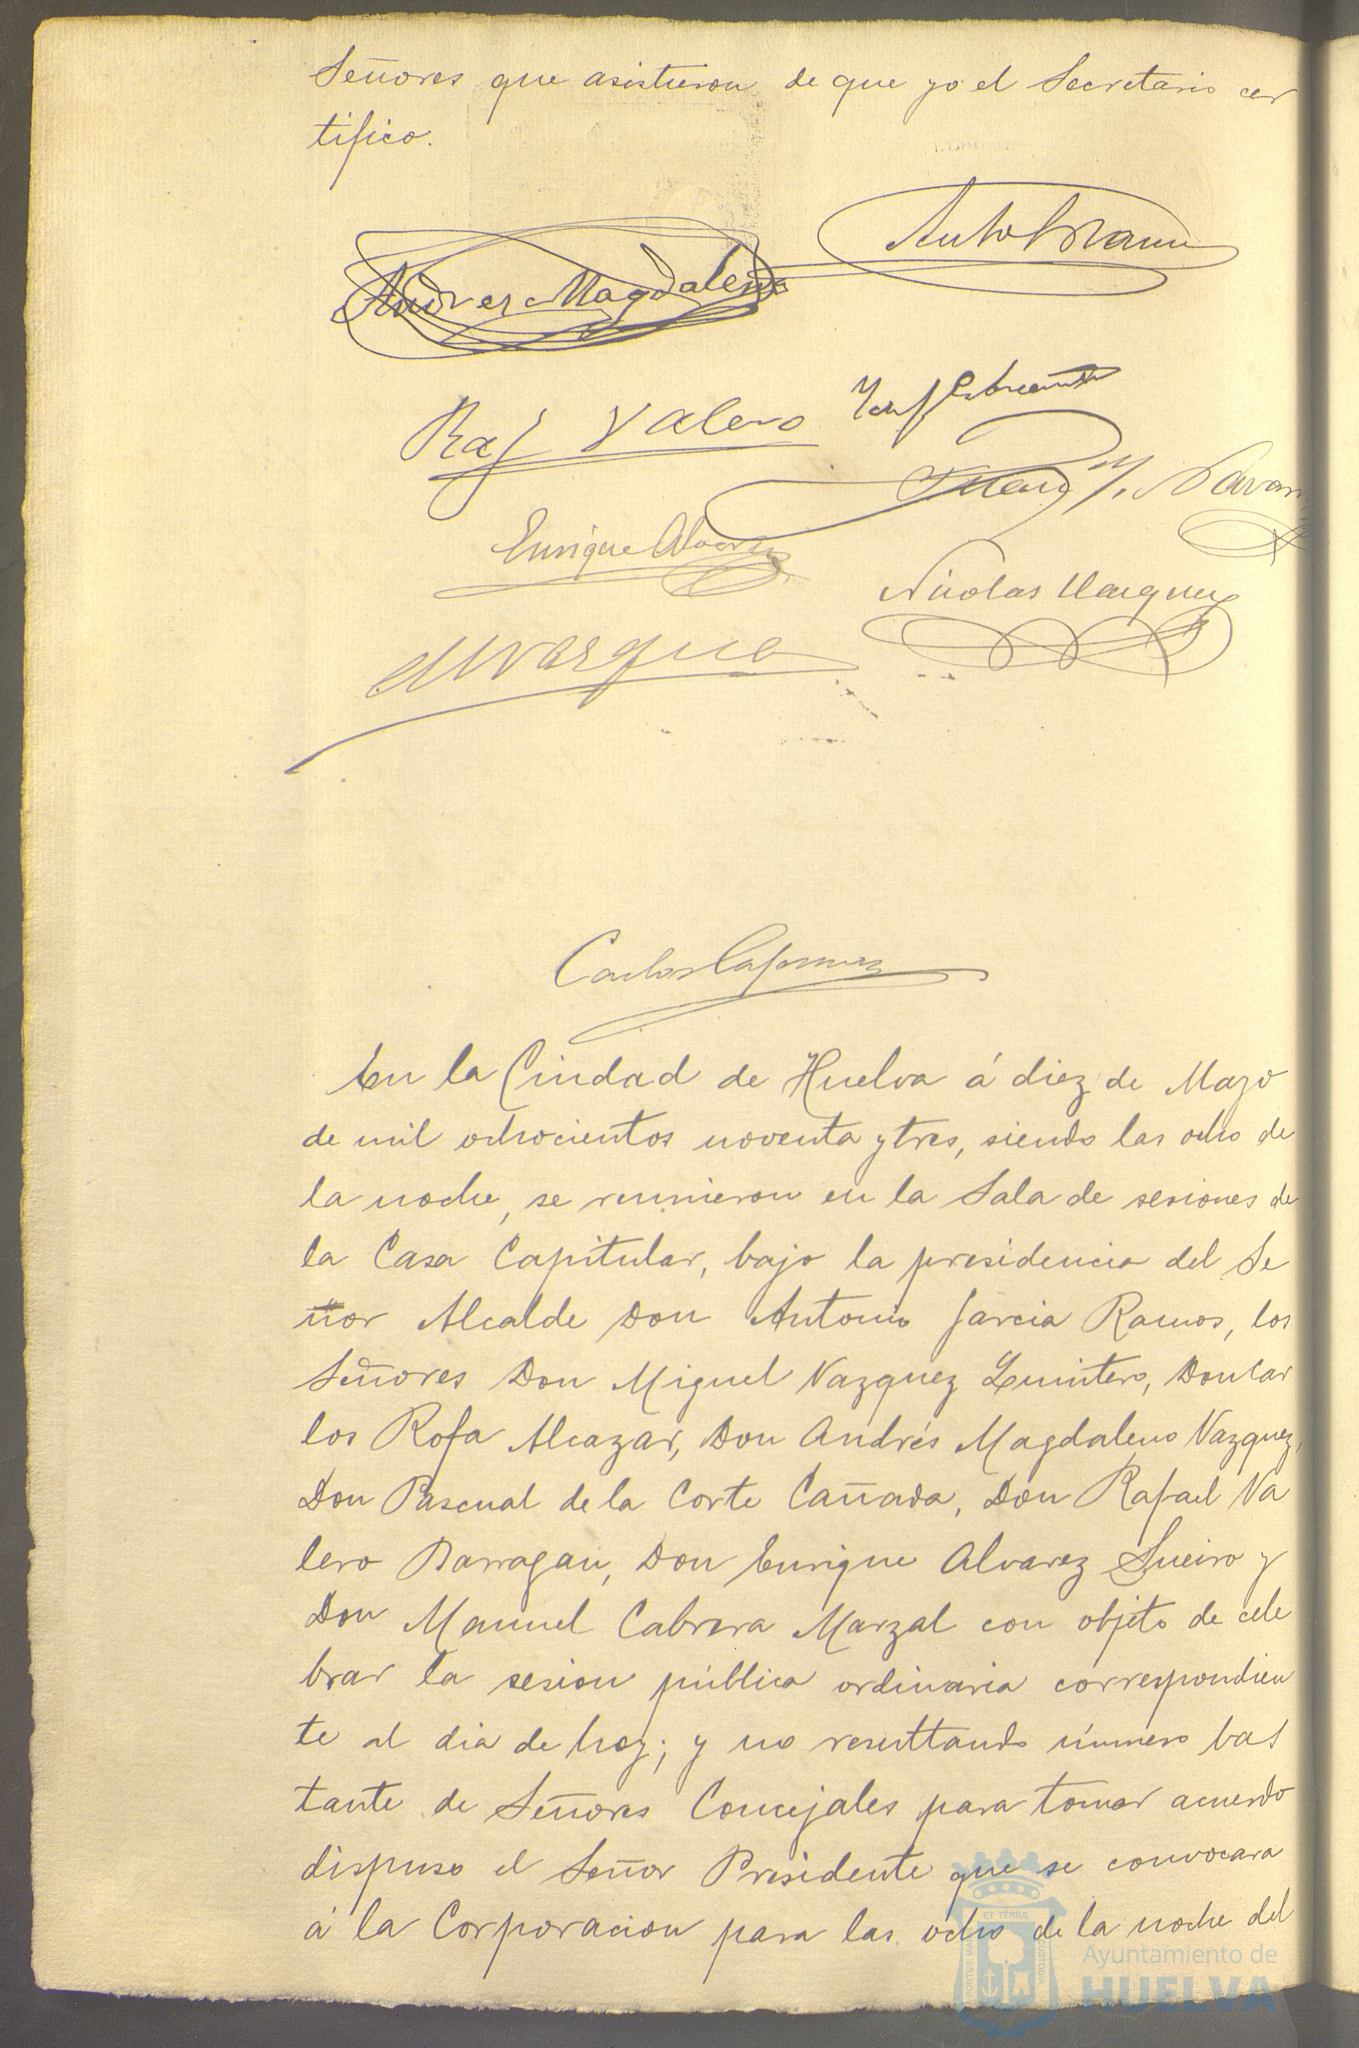 Señores que asistieron de que yo el Secretario cer
tifico.
Andres Magdaleno
Raf Valero
Enrique Alvarez
Nicolas Vazquez
Carlos
En la Ciudad de Huelva á diez de Mayo
de mil ochocientos noventa y tres, siendo las ocho de
la noche, se reunieron en la Sala de sesiones de
la Casa Capitular, bajo la presidencia del Se
ñor Alcalde Don Antonio Garcia Ramos, los
Señores Don Miguel Vazquez Quintero, Don Car
los Rofa Alcazar, Don Andrés Magdaleno Vazquez,
Don Pascual de la Corte Cañada, Don Rafael Va
lero Barragan, Don Enrique Alvarez Sueiro y
Don Manuel Cabrera Marzal con objeto de cele
brar la sesion pública ordinaria correspondien
te al dia de hoy; y no resultando número bas
tante de Señores Concejales para tomar acuerdo
dispuso el Señor Presidente que se convocara
á la Corporacion para las ocho de la noche del
Ayuntamiento de
HUELVA